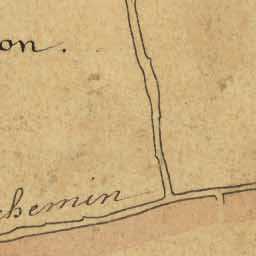 on.
chemin